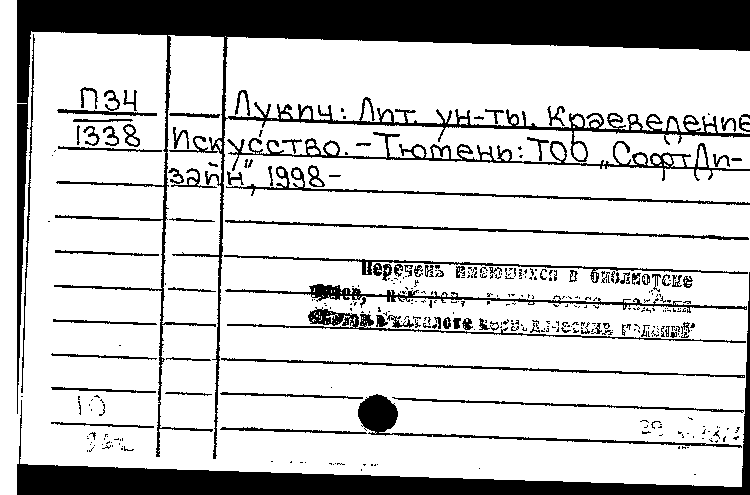 П34
1338
Лукич: Лит. ун-ты. Краеведение
Искусство. – Тюмень: ТОО „СофтДи-
зайн", 1998 –
Перечень имеющихся в библиотеке
номеров, этого издания
в каталоге периодических изданий
10